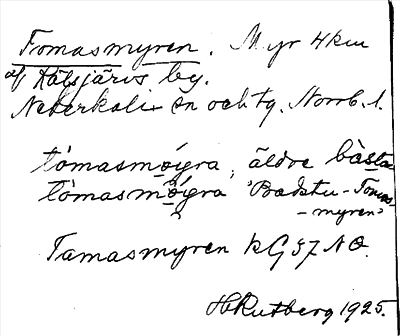 Tomasmyren. Myr 4km
af Kälsjärvs by.
Nederkalix sn och tg. Norrb. l.
tómasmǫi̯gra, äldre bàsta
tómasmǫ́i̯gra "Badstu-Tomas-
-myren"
Tamasmyren KG 57 NO.
H Rutberg 1925.